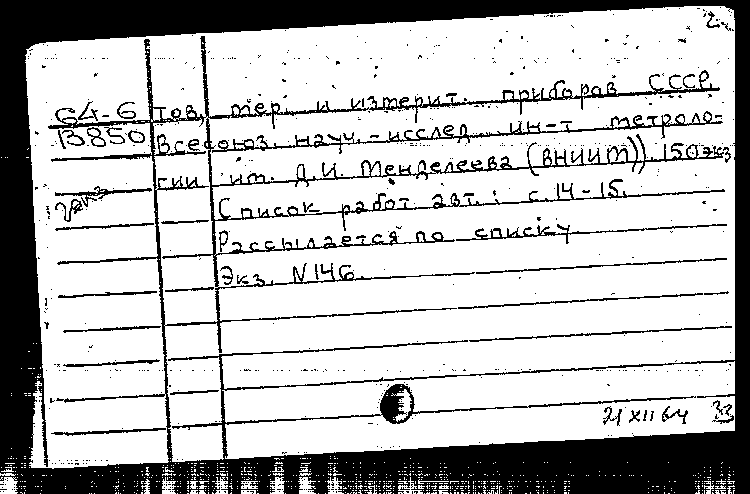 2.
64-6 тов, мер. и измерит. приборов СССР.
13850 Всесоюз. науч.-исслед. ин-т метроло=
гии им. Д.И. Менделеева (ВНИИМ)). 150 экз
Список работ авт.: с. 14-15.
Рассылается по списку.
Экз. N 146.
21 XII 64 33